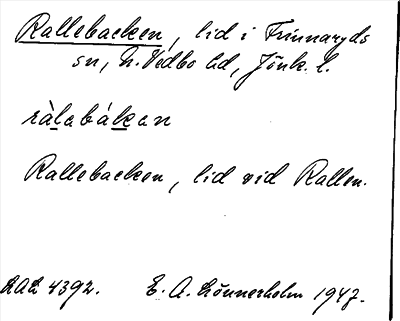 Rallebacken, lid i Frinnaryds
sn, N. Vedbo hd, Jönk. l.
ràlabákan
Rallebacken, lid vid Rallen.
LAL 4392. E. A. Lönnerholm 1947.